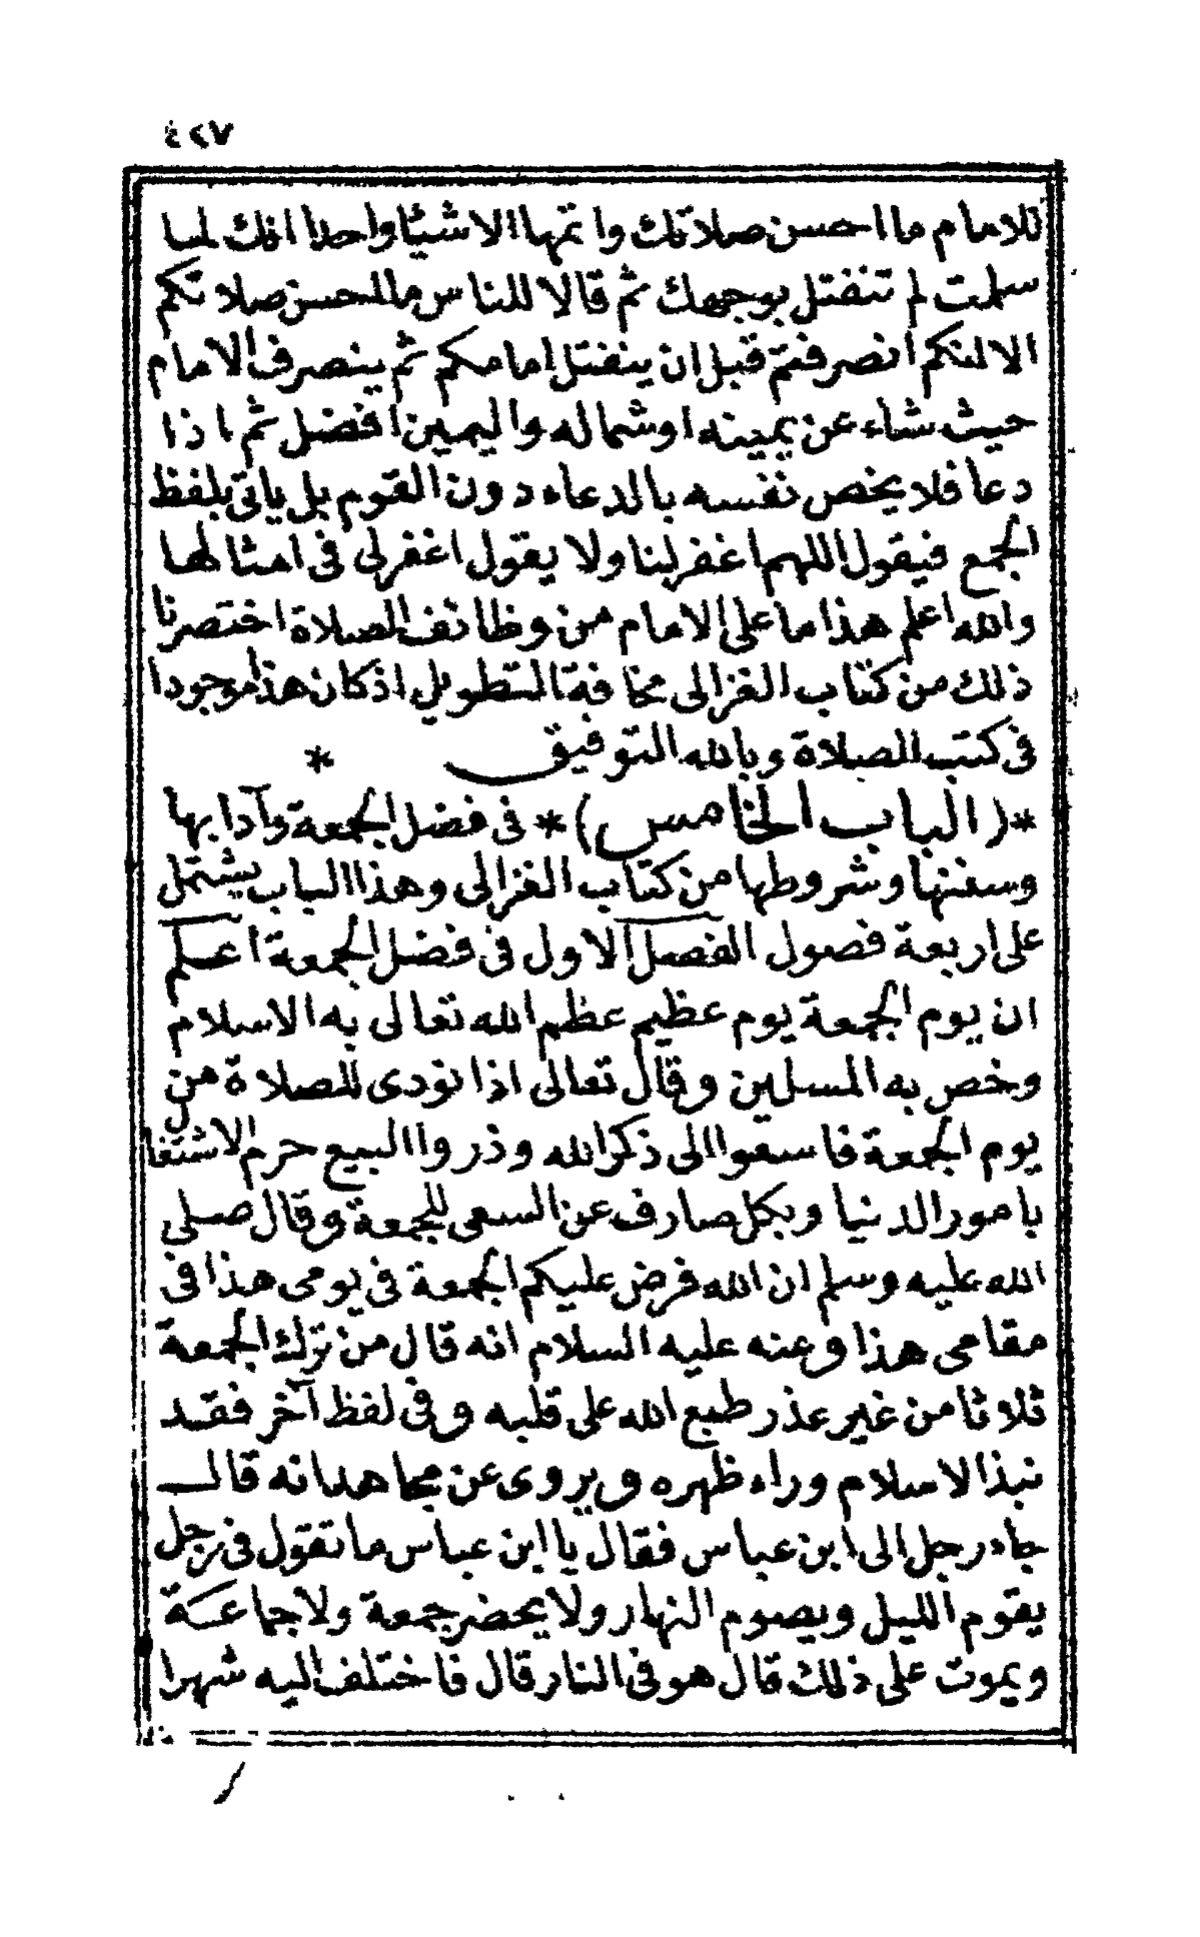 ٤٢٧
للامام ما احسن صلاتك واتمها الا شيئا واحدا انك لما
سلمت لم تنفتل بوجهك ثم قالا للناس ما احسن صلاتكم
الا انكم انصرفتم قبل ان ينفتل امامكم ثم ينصرف الامام
حيث شاء عن يمينه او شماله واليمين افضل ثم اذا
دعا فلا يخص نفسه بالدعاء دون القوم بل ياتى بلفظ
الجمع فيقول اللهم اغفر لنا ولا يقول اغفر لى فى امثالها
والله اعلم هذا ما على الامام من وظائف الصلاة اختصرنا
ذلك من كتاب الغزالى مخافة التطويل اذ كان هذا موجودا
فى كتب الصلاة وبالله التوفيق *
*(الباب الخامس)* فى فضل الجمعة وآدابها
وسننها وشروطها من كتاب الغزالى وهذا الباب يشتمل
على اربعة فصول الفصل الاول فى فضل الجمعة اعلم
ان يوم الجمعة يوم عظيم عظم الله تعالى به الاسلام
وخص به المسلمين وقال تعالى اذا نودى للصلاة من
يوم الجمعة فاسعوا الى ذكر الله وذروا البيع حرم الاشتغال
بامور الدنيا وبكل صارف عن السعى للجمعة وقال صلى
الله عليه وسلم ان الله فرض عليكم الجمعة فى يومى هذا فى
مقامى هذا وعنه عليه السلام انه قال من ترك الجمعة
ثلاثا من غير عذر طبع الله على قلبه وفى لفظ آخر فقد
نبذ الاسلام وراء ظهره ويروى عن مجاهد انه قال
جاء رجل الى ابن عباس فقال يا ابن عباس ما تقول فى رجل
يقوم الليل ويصوم النهار ولا يحضر جمعة ولا جماعة
ويموت على ذلك قال هو فى النار قال فاختلف اليه شهرا